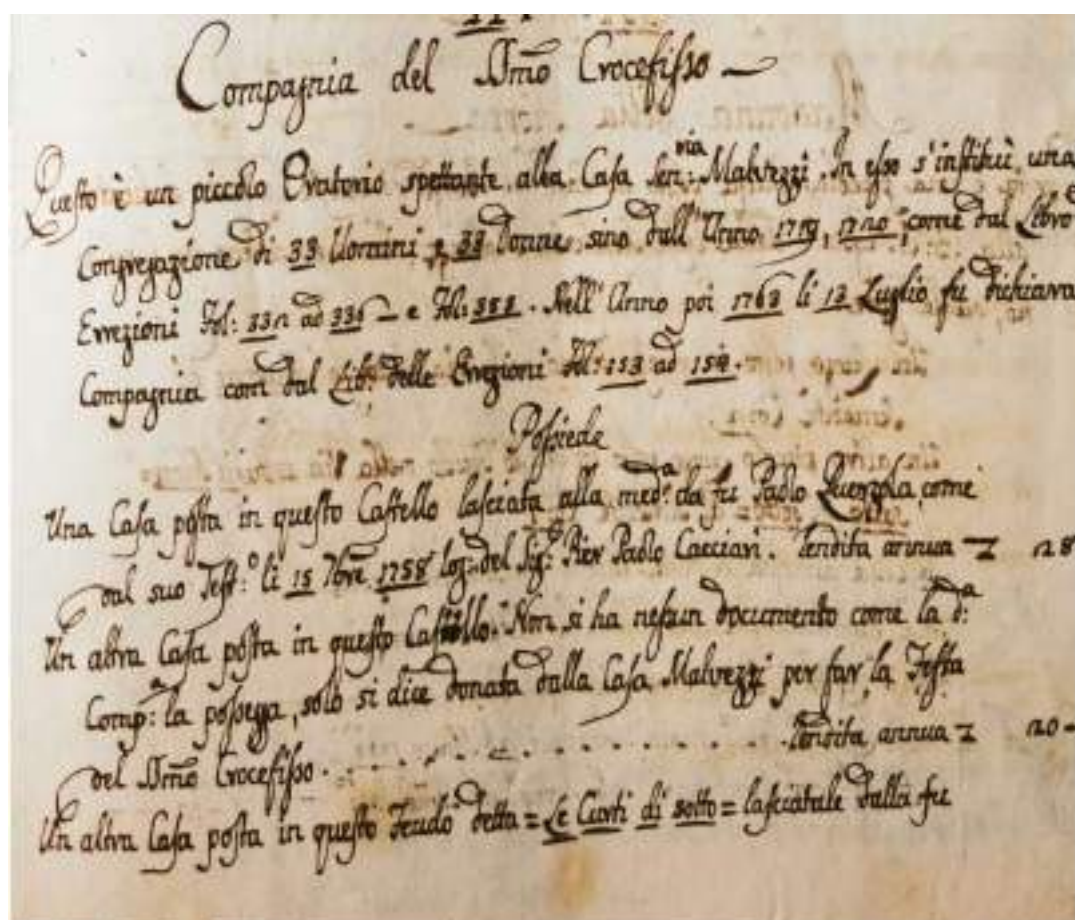 Compagnia del SSmo Crocefisso
Questo è un piccolo Oratorio spettante alla Casa Sen:ria Malvezzi. In esso s'instituì una
Congregazione di 33 Uomini e 33 Donne sino dall'Anno 1719, 1720, come dal Libro
Errezioni Fol: ad 336 e Fol: . Nell'Anno poi 1763 li 13 Luglio fu dichiara
Compagnia com dal Lib: delle Errezioni Fol: 153 ad 154.
Possiede
Una Casa posta in questo Castello lasciata alla med:a da fu Paolo come
dal suo Test:o li 15 1758 Rog: del Sig: Pier Paolo Cacciari. Rendita annua 28
Un altra Casa posta in questo Castello. Non si ha nessun documento come la d:a
Comp:a la possegga, solo si dice donata dalla Casa Malvezzi per far la Festa
del SSmo Crocefisso . . . . . . . . . . . . . . . . Rendita annua 20 -
Un altra Casa posta in questo Feudo detta = Le Curti di sotto = lasciatale dalla fu